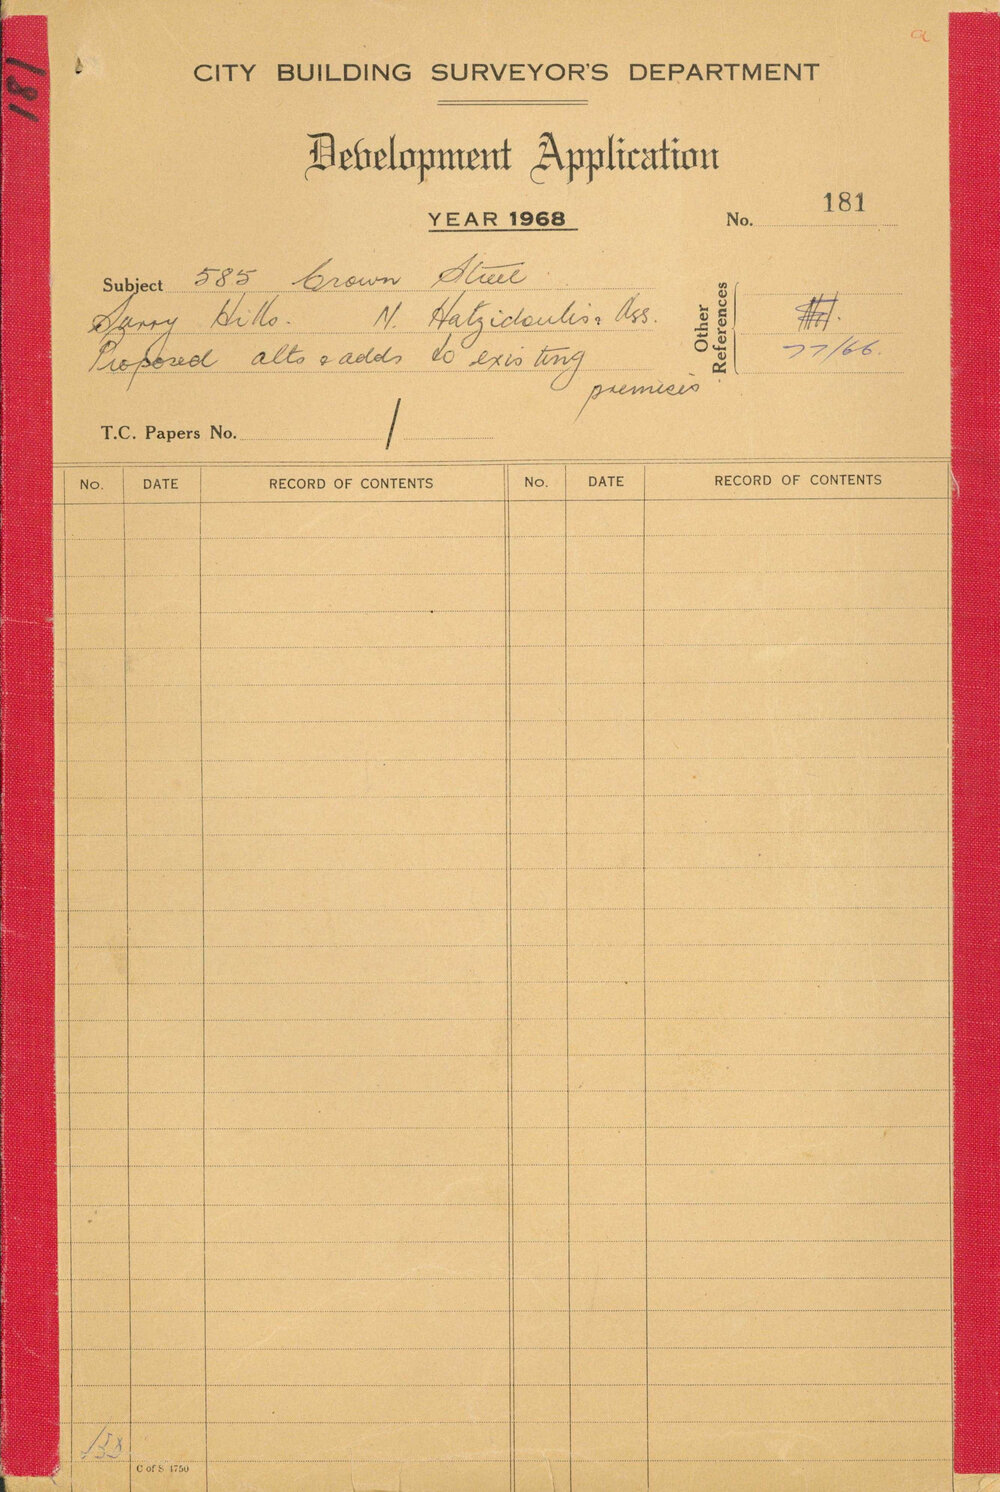 a
181
CITY BUILDING SURVEYOR'S DEPARTMENT
Development Application
YEAR 1968
No. 181
Subject 585 Crown Street
Surry Hills. N. Hatzidoulis & Ass.
Proposed alts & adds to existing
premises
Other
References
77/66.
T.C. Papers No. /
No. DATE RECORD OF CONTENTS No. DATE RECORD OF CONTENTS
C of S 4750